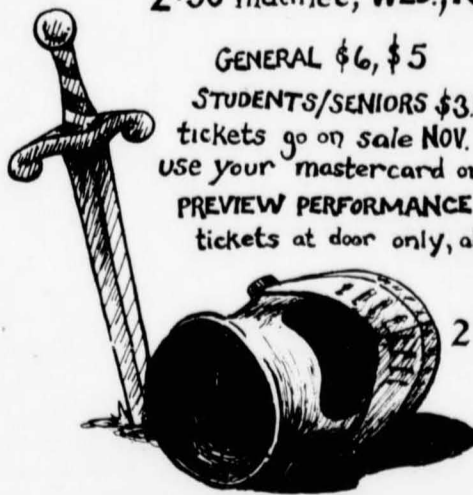 2:30 matinee, WED.,
GENERAL $6, $5
STUDENTS/SENIORS $3.
tickets go on sale NOV.
use your mastercard or
PREVIEW PERFORMANCE
tickets at door only,
2